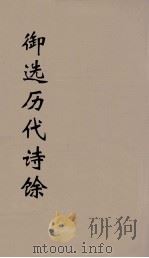 御选历代诗馀
mtoou.info